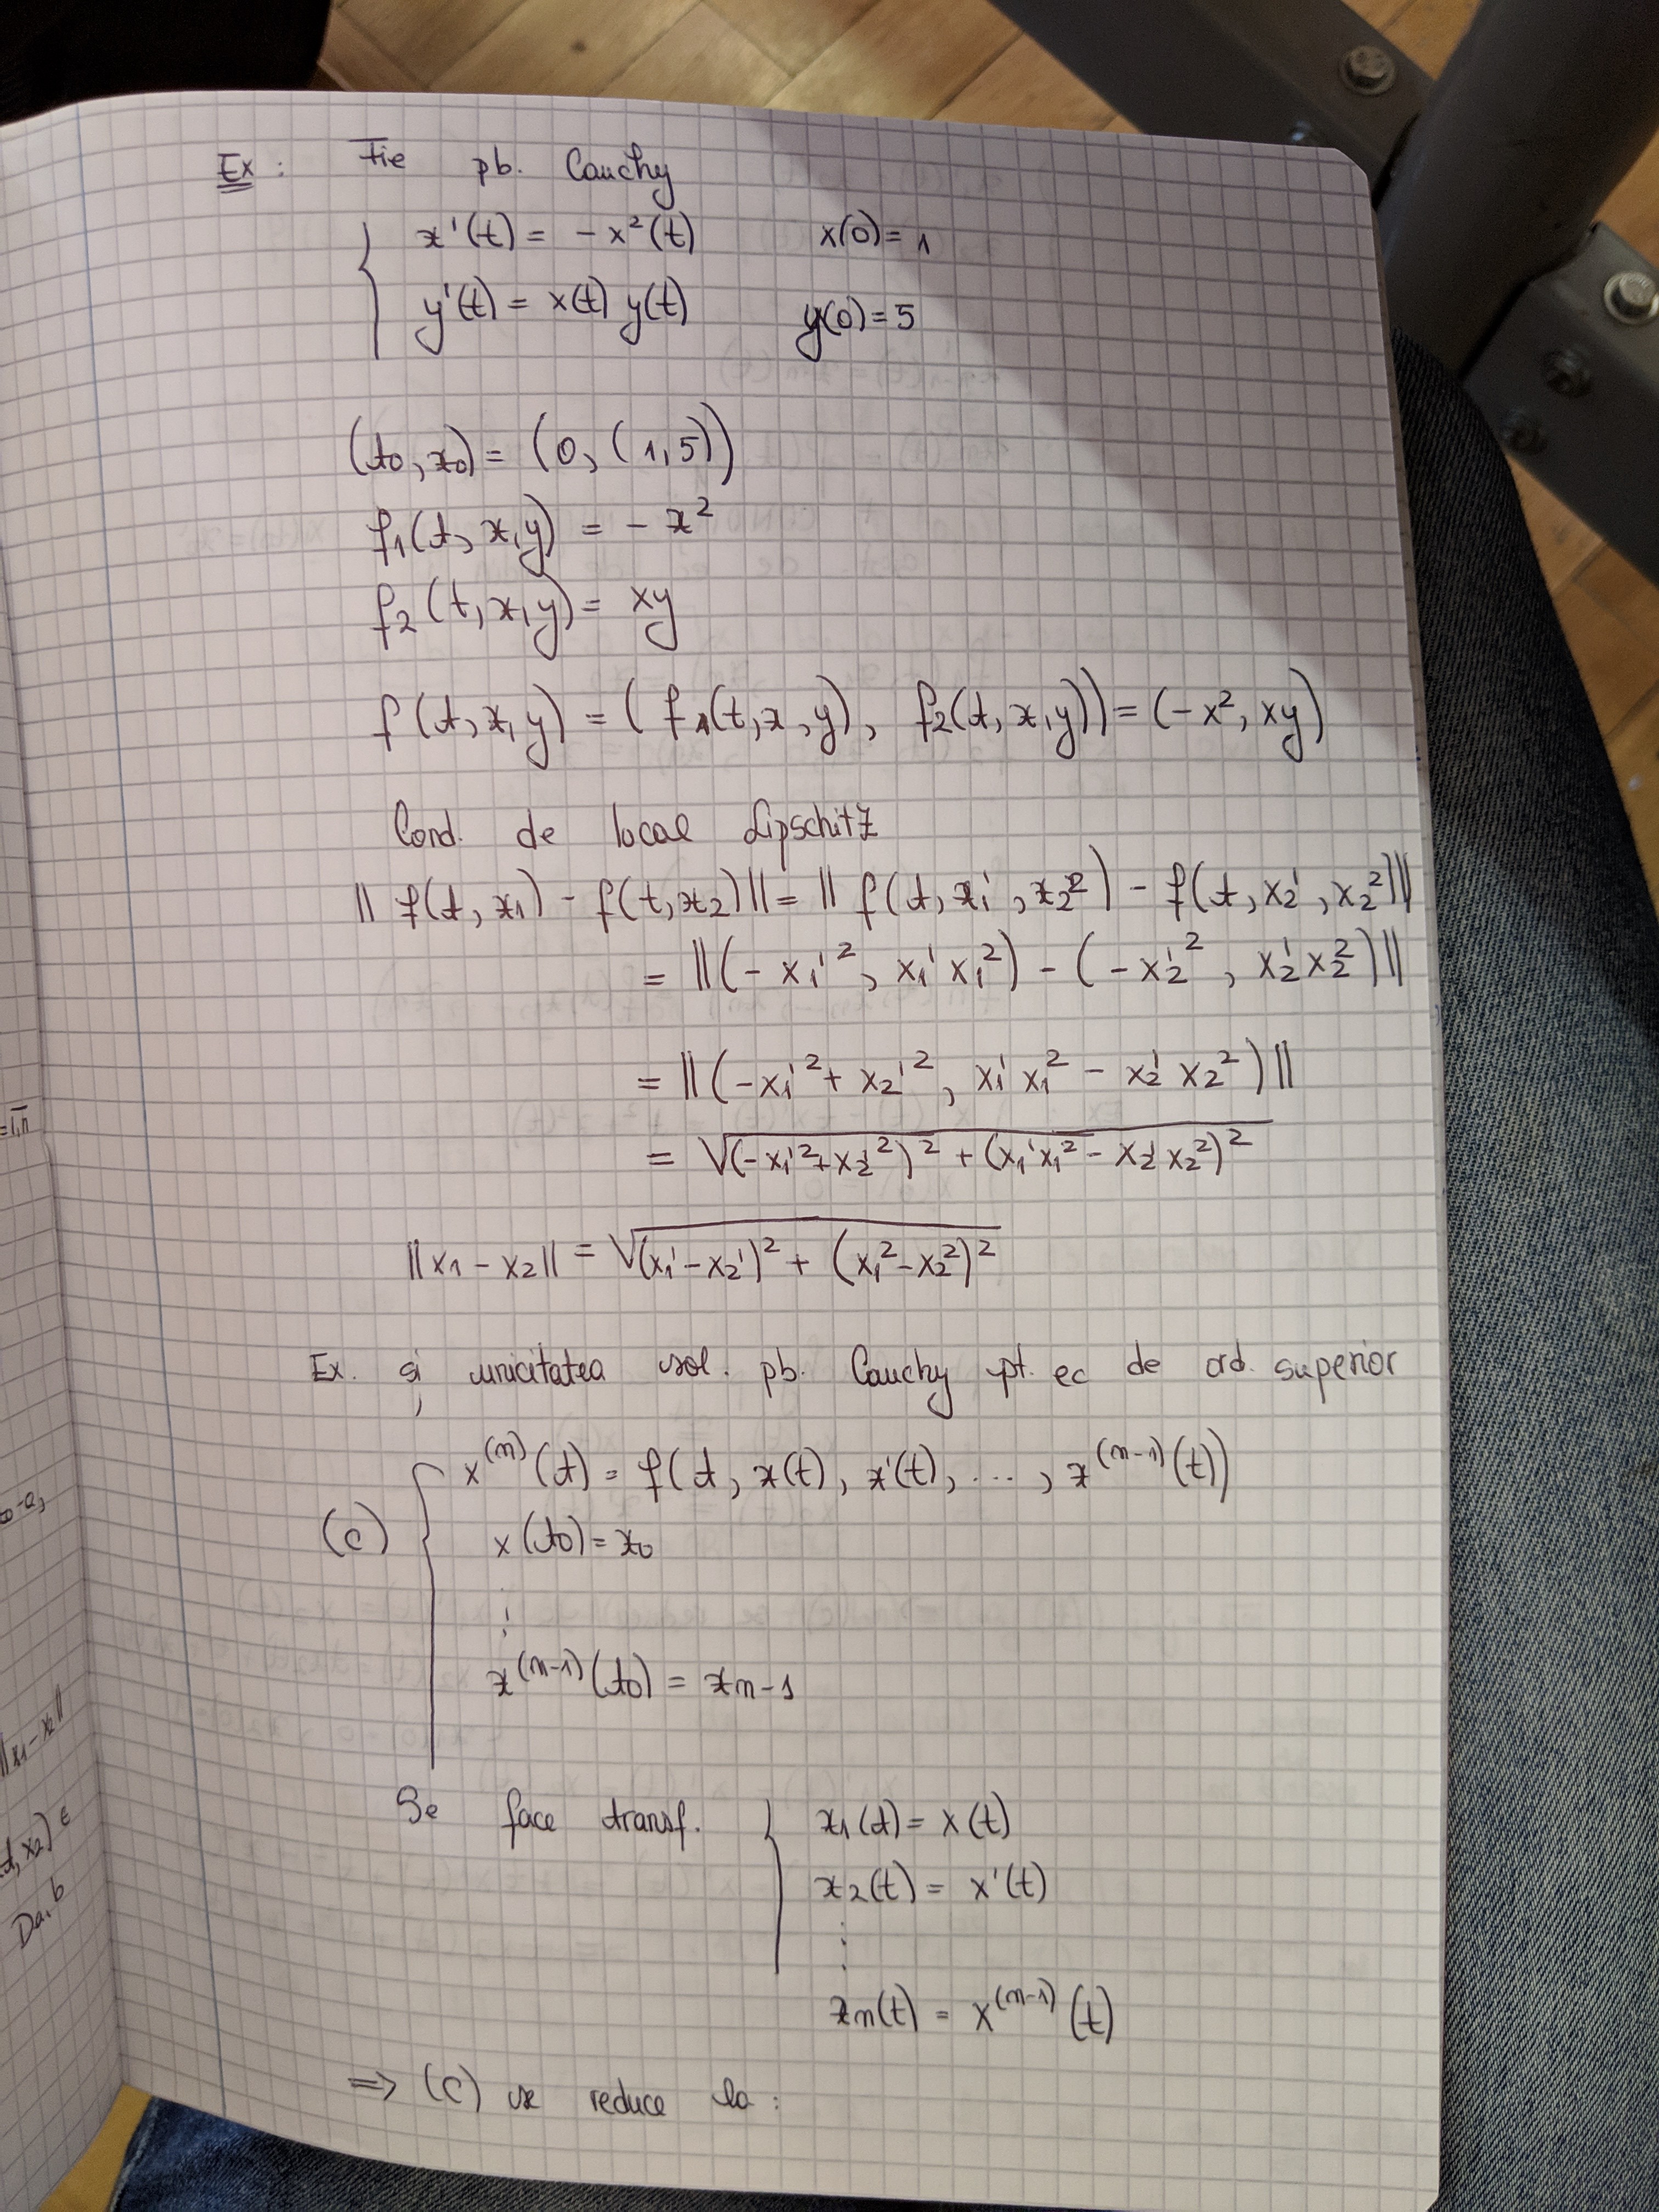 Ex : Fie pb. Cauchy
x'(t) = - x²(t) x(0) = 1
y'(t) = x(t) y(t) y(0) = 5
(t0, x0) = (0, (1,5))
f1(t, x, y) = - x²
f2(t, x, y) = xy
f(t, x, y) = (f1(t, x, y), f2(t, x, y)) = (-x², xy)
Cond. de local Lipschitz
|| f(t, x1) - f(t, x2) || = || f(t, x1¹, x2²) - f(t, x2¹, x2²) ||
= || (- x1¹ ², x1¹ x1²) - (- x2¹ ², x2¹ x2²) ||
= || (-x1¹ ² + x2¹ ², x1¹ x1² - x2¹ x2²) ||
= √(-x1¹ ² + x2¹ ²)² + (x1¹ x1² - x2¹ x2²)²
|| x1 - x2 || = √(x1¹ - x2¹)² + (x1² - x2²)²
Ex. și unicitatea sol. pb. Cauchy pt. ec de ord. superior
x⁽ⁿ⁾(t) = f(t, x(t), x'(t), ..., x⁽ⁿ⁻¹⁾(t))
(C) x(t0) = x0
⋮
x⁽ⁿ⁻¹⁾(t0) = xn-1
Se face transf. x1(t) = x(t)
x2(t) = x'(t)
⋮
xn(t) = x⁽ⁿ⁻¹⁾(t)
=> (C) se reduce la :
=1,n
||x1 - x2||
t, x2) ∈
Da,b